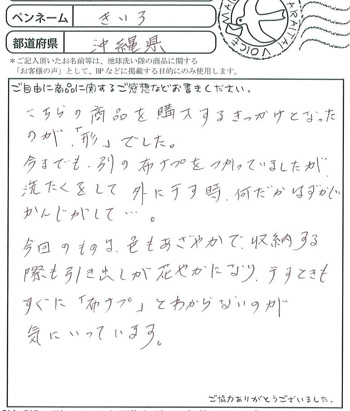 ペンネーム きいろ
都道府県 沖縄県
*ご記入頂いたお名前等は、地球洗い隊の商品に関する
「お客様の声」として、HPなどに掲載する目的にのみ使用します。
ご自由に商品に関するご感想などお書きください。
こちらの商品を購入するきっかけとなった
のが、「形」でした。
今までも、別の布ナプをつかっていましたが
洗たくをして外に干す時、何だかはずかしい
かんじがして…。
今回のものは、色もあざやかで、収納する
際も引き出しが花やかになり、干すときも
すぐに「布ナプ」とわからないのが
気にいっています。
ご協力ありがとうございました。